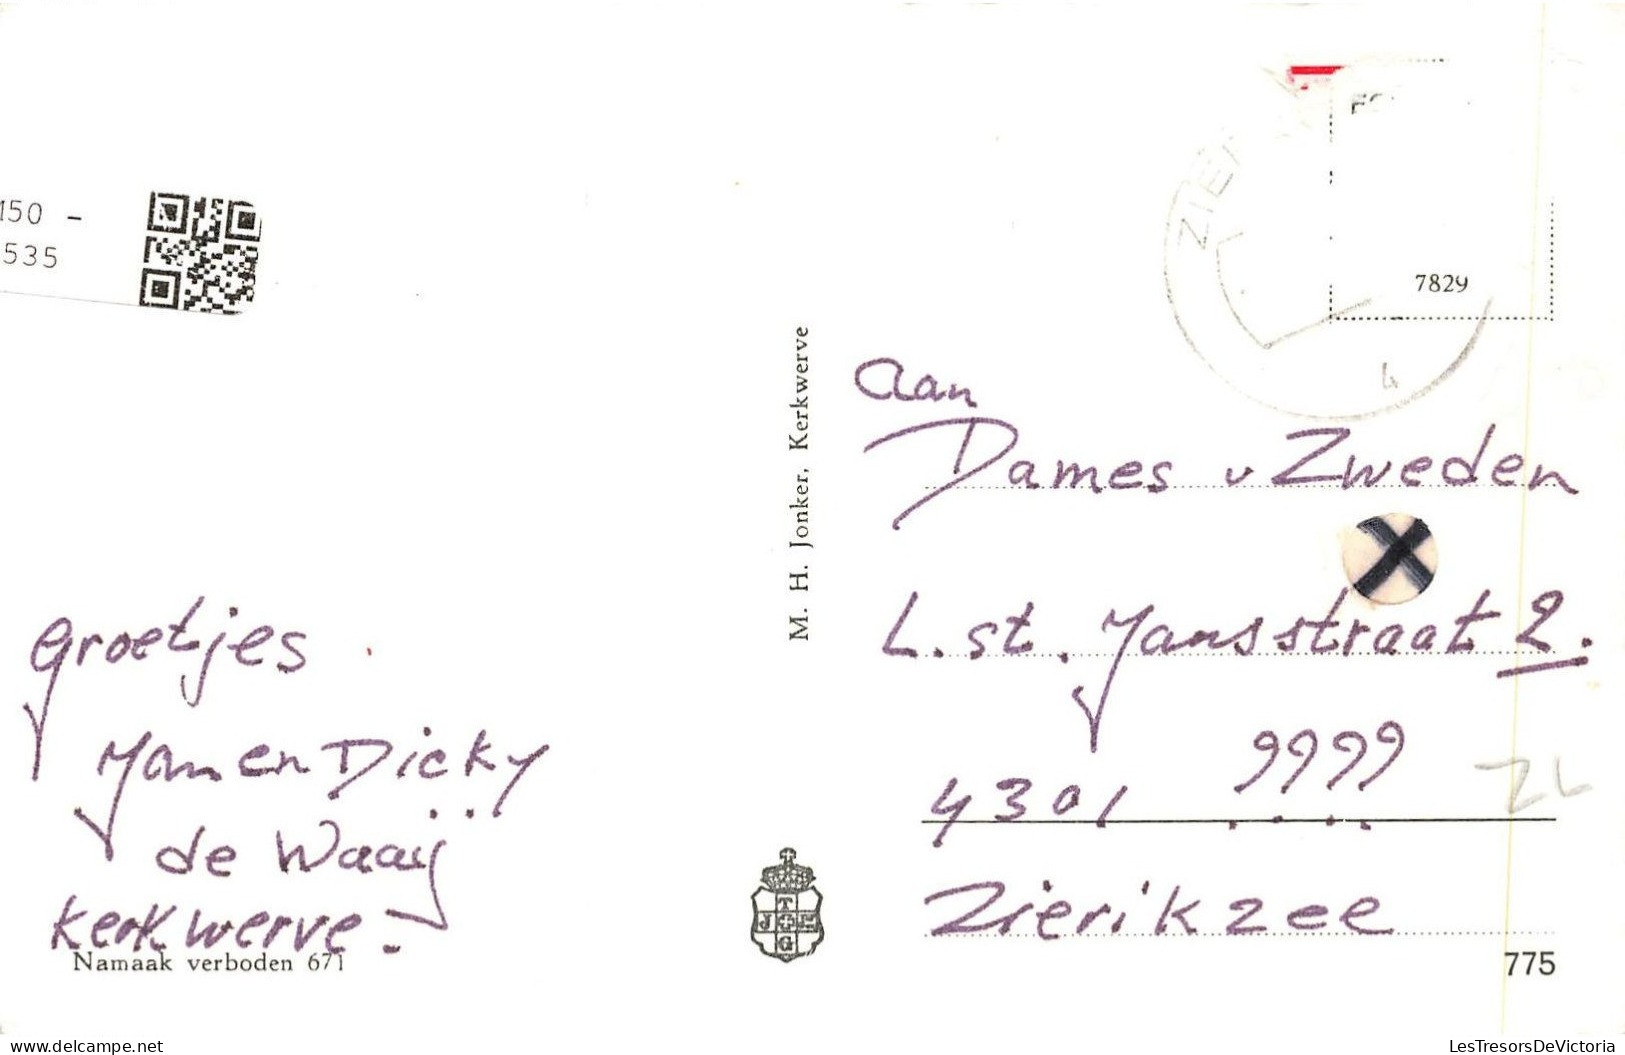 150 -
535
ZIERIK
7829
M. H. Jonker, Kerkwerve
aan
Dames v Zweden
L. st. Jansstraat 2.
4301 ????
Zierikzee
ZL
groetjes
Jan en Dicky
de Waaij
Kerkwerve.
Namaak verboden 671
775
delcampe.net
LesTresorsDeVictoria